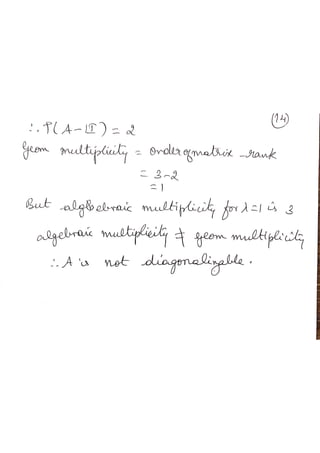 (14)
∴ ρ(A-1I) = 2
Geom multiplicity = order of matrix - rank
= 3-2
= 1
But algebraic multiplicity for λ=1 is 3
algebraic multiplicity ≠ geom multiplicity
∴ A is not diagonalizable.